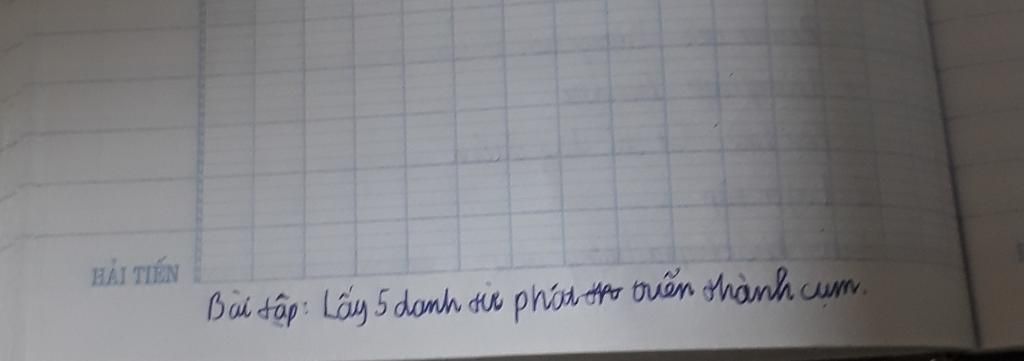 HẢI TIẾN
Bài tập: Lấy 5 danh từ phát triển thành cụm.